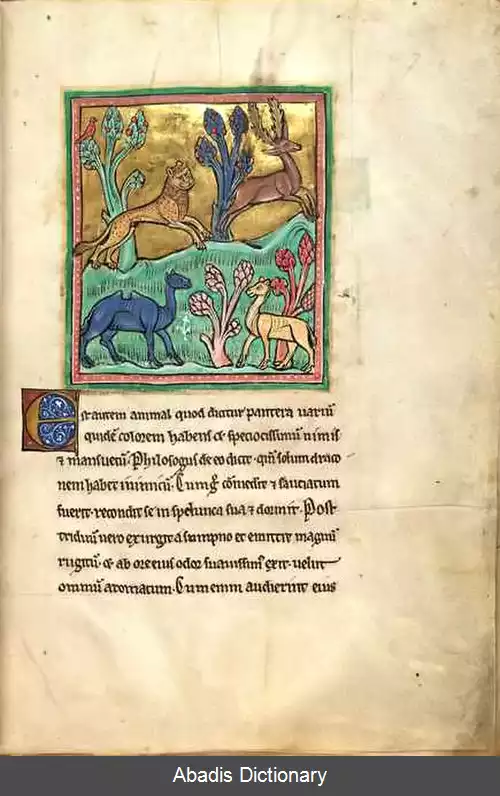 Est autem animal quod dicitur pantera variū
quidē colorem habens & speciocissimū nimis
⁊ mansuetū. Philosogus de eo dicit. qm̄ solum draco
nem habet inimicū. Cum gͦ comedit ⁊ sauciatum
fuerit. recondit se in spelunca sua ⁊ dormit. Post
triduū vero exurgit a sumpno et emittit magnū
rugitū. & ab ore eius odor suauissimꝰ exit. velut
omniū aromatum. Cum enim audierint eius
Abadis Dictionary